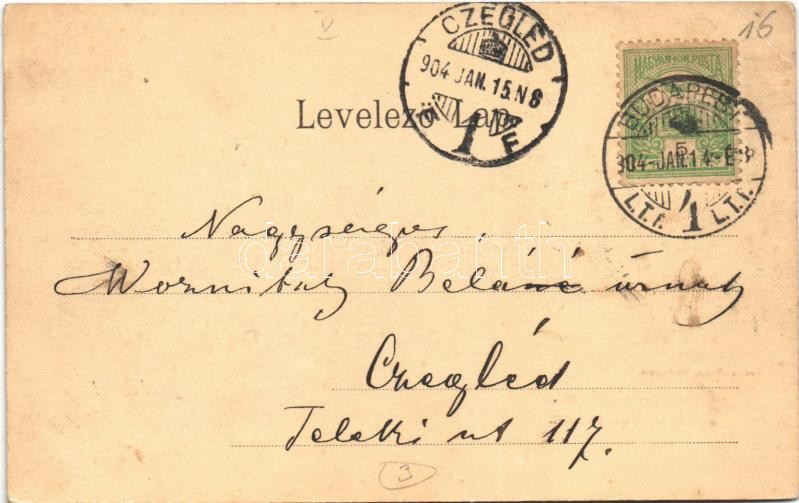 16
CZEGLÉD
904 JAN. 15. N 8
1
F
MAGYAR KIR. POSTA
5
BUDAPEST
904-JAN. 14-
L.T.I. 1 L.T.I.
Levelező Lap.
Nagyságos
Béláné úrnak
Czegléd
Teleki ut 117.
3
darabanth